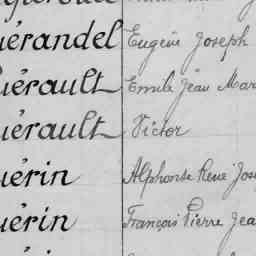 uérandel Eugène Joseph
uérault Emile Jean Mar
uérault Victor
uérin Alphonse René Jos
uérin François Pierre Jea